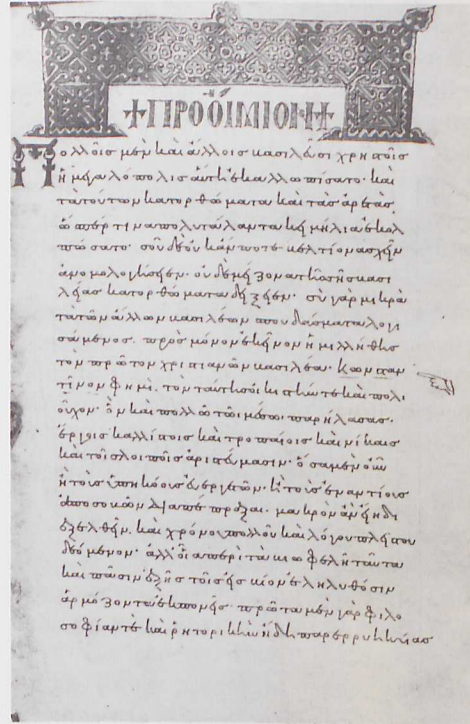 +ΠΡΟΟΙΜΙΟΝ+
Πολλοῖς μὲν καὶ ἄλλοις βασιλεῦσι χρηστοῖς
ἡ μεγαλόπολις αὕτη ἐκαλλωπίσατο· καὶ
τὰ τούτων κατορθώματα καὶ τὰς ἀρετὰς
ὥσπερ τινα πολυτάλαντα κειμήλια ἐκολ
πώσατο· σοῦ δὲ οὐκ ἄν ποτε βελτίονα σχεῖν
ἀνομολογήσειεν· οὐδὲ μείζονα τῆς σῆς βασι
λείας κατορθώματα δείξειεν· σὺ γὰρ μικρὰ
τὰ τῶν ἄλλων βασιλέων σπουδάσματα λογι
σάμενος· πρὸς μόνον ἐκεῖνον ἡμιλλήθης
τὸν πρῶτον χριστιανῶν βασιλέα· Κωνσταν
τῖνον φημι· τὸν ταυτησὶ κτίστην τε καὶ πολι
οῦχον· ὃν καὶ πολλῶ τῶ μέσω παρήλασας·
ἔργοις καλλίστοις καὶ τροπαίοις καὶ νίκαις
καὶ τοῖς λοιποῖς ἀριστεύμασιν· ὅσα μὲν οὖν
ἢ τοὺς ὑπηκόους εὐεργετῶν· ἢ τοὺς ἐναντίους
ἀποσοβῶν διαπέπραξαι· μακρὸν ἂν εἴη δι
εξελθεῖν· καὶ χρόνου πολλοῦ καὶ λόγου πλείστου
δεόμενον· ἀλλ' οἷάπερ τὰ βιωφελῆ ταῦτα
καὶ πᾶσιν ἑξῆς τοῖς εἰς βίον ἐληλυθόσιν
ἁρμόζοντα ἐκπονεῖς· πρῶτα μὲν γὰρ φιλο
σοφίαν τε καὶ ῥητορικὴν ἤδη παρερρυηκυίας